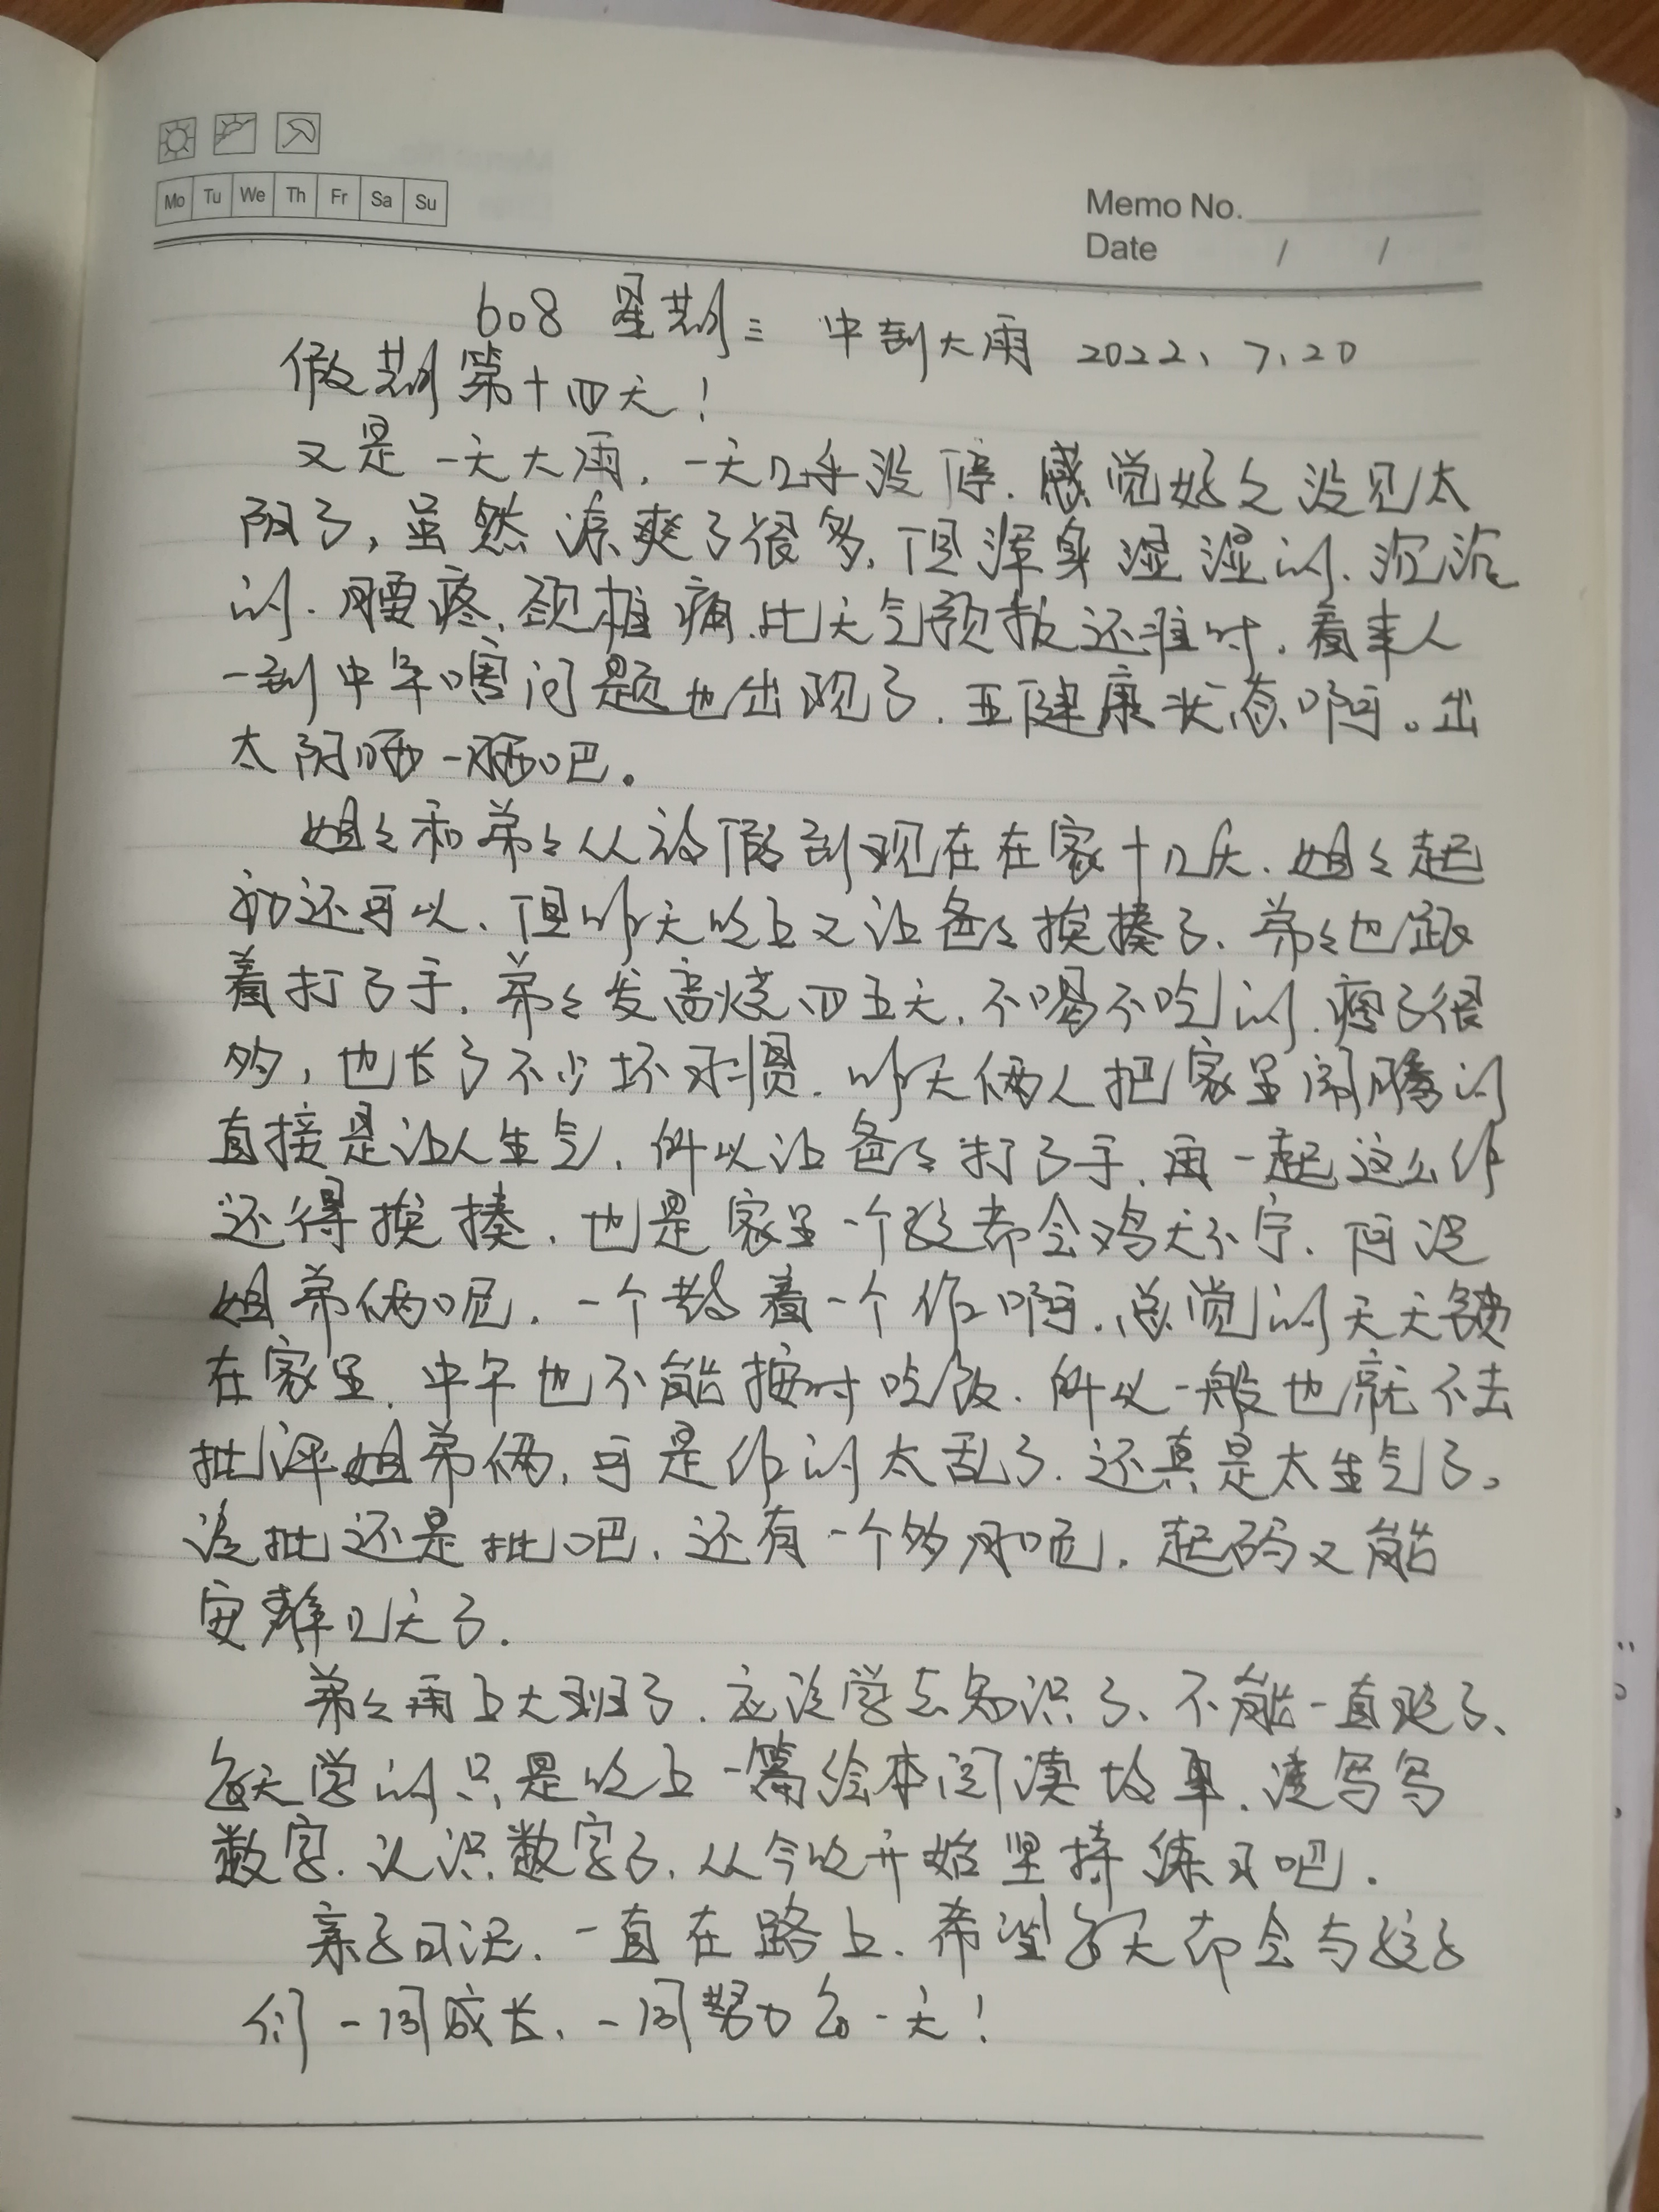 Mo Tu We Th Fr Sa Su
Memo No.
Date / /
608 星期三 中到大雨 2022、7、20
假期第十四天！
又是一天大雨，一天几乎没停．感觉好久没见太
阳了，虽然凉爽了很多，但浑身湿湿的、沉沉
的．腰疼，颈椎痛．比天气预报还准时．看来人
一到中年啥问题也出现了．亚健康状态啊。出
太阳晒一晒吧。
姐々和弟々从放假到现在在家十几天．姐々起
初还可以、但昨天晚上又让爸々挨揍了、弟々也跟
着打了手．弟々发高烧四五天．不喝不吃的．瘦了很
多，也长了不少坏习惯．昨天俩人把家里闹腾的
直接是让人生气．所以让爸々打了手．再一起这么作
还得挨揍．也是家里一个孩都会鸡犬不宁．何况
姐弟俩呢．一个带着一个作啊．总觉的天天锁
在家里．中午也不能按时吃饭．所以一般也就不去
批评姐弟俩，可是作的太乱了．还真是太生气了。
该批还是批吧．还有一个多月呢．起码又能
安静几天了．
弟々再上大班了．应该学点知识了、不能一直玩了、
每天学的只是晚上一篇绘本阅读故事．该写写
数字．认识数字了．从今晚开始坚持练习吧．
亲子日记．一直在路上．希望每天都会与孩子
们一同成长．一同努力每一天！